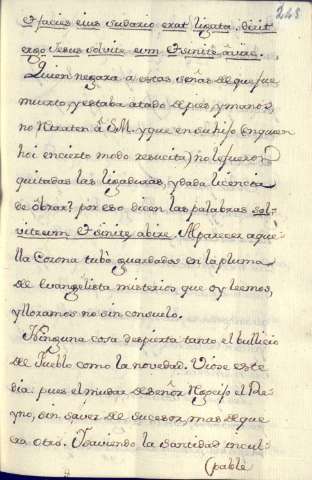 248
et facies eius sudario erat ligata. dixit
ergo Jesus solvite eum et sinite avire.
Quien negara a estas señas de que fue
muerto, y estaba atado de pies, y manos,
no Retraten â S.M. y que en su hijo (en quien
hoi en cierto modo resucita) no le fueron
quitadas las ligaduras, y dada licencia
de ôbrar? por eso dicen las palabras sol-
vite eum et sinite abire. Al pareçer aque-
lla Corona tubò guardados en la pluma
de Evangelista misterios que oy leemos,
y lloramos no sin consuelo.
Ninguna cosa despierta tanto el bullicio
de Pueblo como la novedad. Viose este
dia: pues el mudar de señor Hizo el Rey-
no, sin saver de sucesor, mas de que
era otro. I saviendo la santidad incul-
(pable